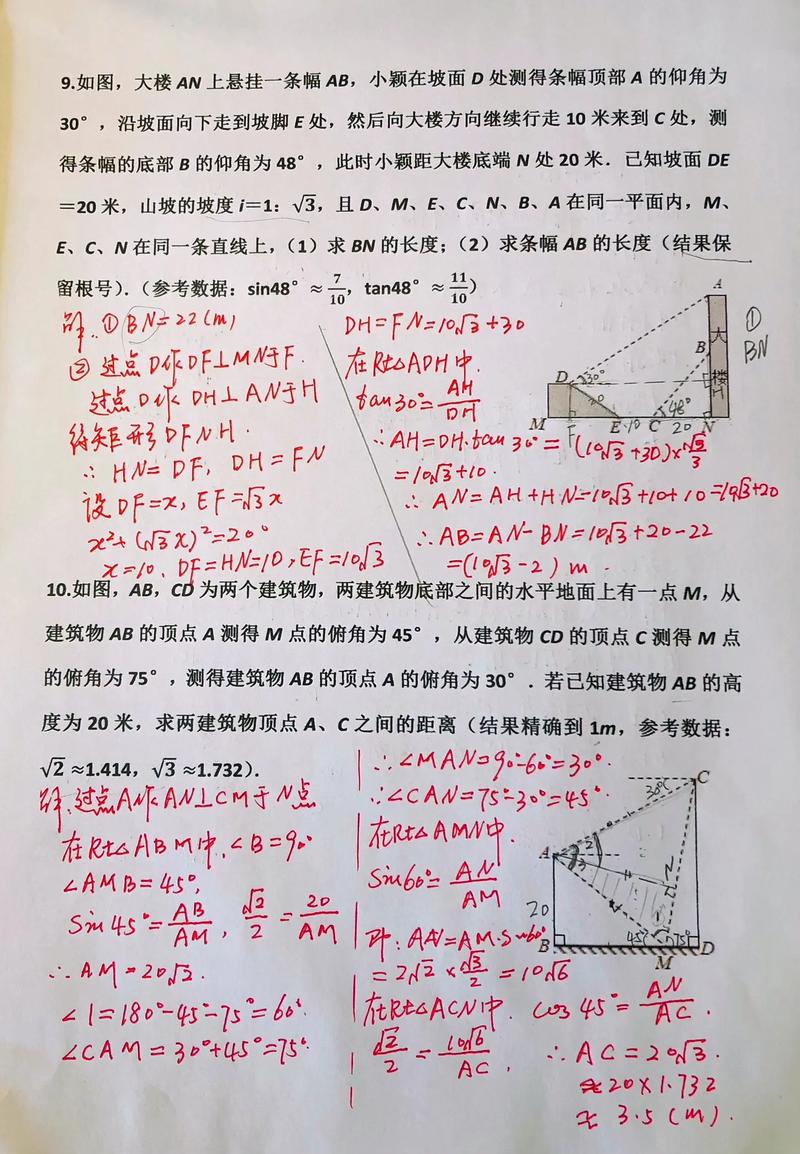 9.如图，大楼 AN 上悬挂一条幅 AB，小颖在坡面 D 处测得条幅顶部 A 的仰角为
30°，沿坡面向下走到坡脚 E 处，然后向大楼方向继续行走 10 米来到 C 处，测
得条幅的底部 B 的仰角为 48°，此时小颖距大楼底端 N 处 20 米．已知坡面 DE
=20 米，山坡的坡度 i=1：√3，且 D、M、E、C、N、B、A 在同一平面内，M、
E、C、N 在同一条直线上，（1）求 BN 的长度；（2）求条幅 AB 的长度（结果保
留根号）．（参考数据：sin48°≈7/10，tan48°≈11/10）
解：① BN=22(m)
② 过点D作DF⊥MN于F.
过点D作DH⊥AN于H
得矩形DFNH.
∴ HN=DF, DH=FN
设DF=x, EF=√3x
x²+(√3x)²=20²
x=10. DF=HN=10, EF=10√3
DH=FN=10√3+30
在Rt△ADH中.
tan30°=AH/DH
∴AH=DH·tan30°=(10√3+30)×√3/3
=10√3+10.
∴AN=AH+HN=10√3+10+10=10√3+20
∴AB=AN-BN=10√3+20-22
=(10√3-2) m.
A
①
BN
大
B
楼
D
30°
H
20
48°
M
F
E
10
C
20
N
10.如图，AB，CD 为两个建筑物，两建筑物底部之间的水平地面上有一点 M，从
建筑物 AB 的顶点 A 测得 M 点的俯角为 45°，从建筑物 CD 的顶点 C 测得 M 点
的俯角为 75°，测得建筑物 AB 的顶点 A 的俯角为 30°．若已知建筑物 AB 的高
度为 20 米，求两建筑物顶点 A、C 之间的距离（结果精确到 1m，参考数据：
√2≈1.414，√3≈1.732）．
解：过点A作AN⊥CM于N点
在Rt△ABM中, ∠B=90°
∠AMB=45°,
Sin45°=AB/AM, √2/2=20/AM
∴AM=20√2.
∠1=180°-45°-75°=60°.
∠CAM=30°+45°=75°.
∴∠MAN=90°-60°=30°.
∴∠CAN=75°-30°=45°.
在Rt△AMN中.
Sin60°=AN/AM
即: AN=AM·Sin60°
=2√2×√3/2=10√6
在Rt△ACN中. cos45°=AN/AC.
√2/2=10√6/AC.
∴AC=20√3.
≈20×1.732
≈3.5(m).
C
30°
A
2
3
N
20
1
B
45°
75°
M
D